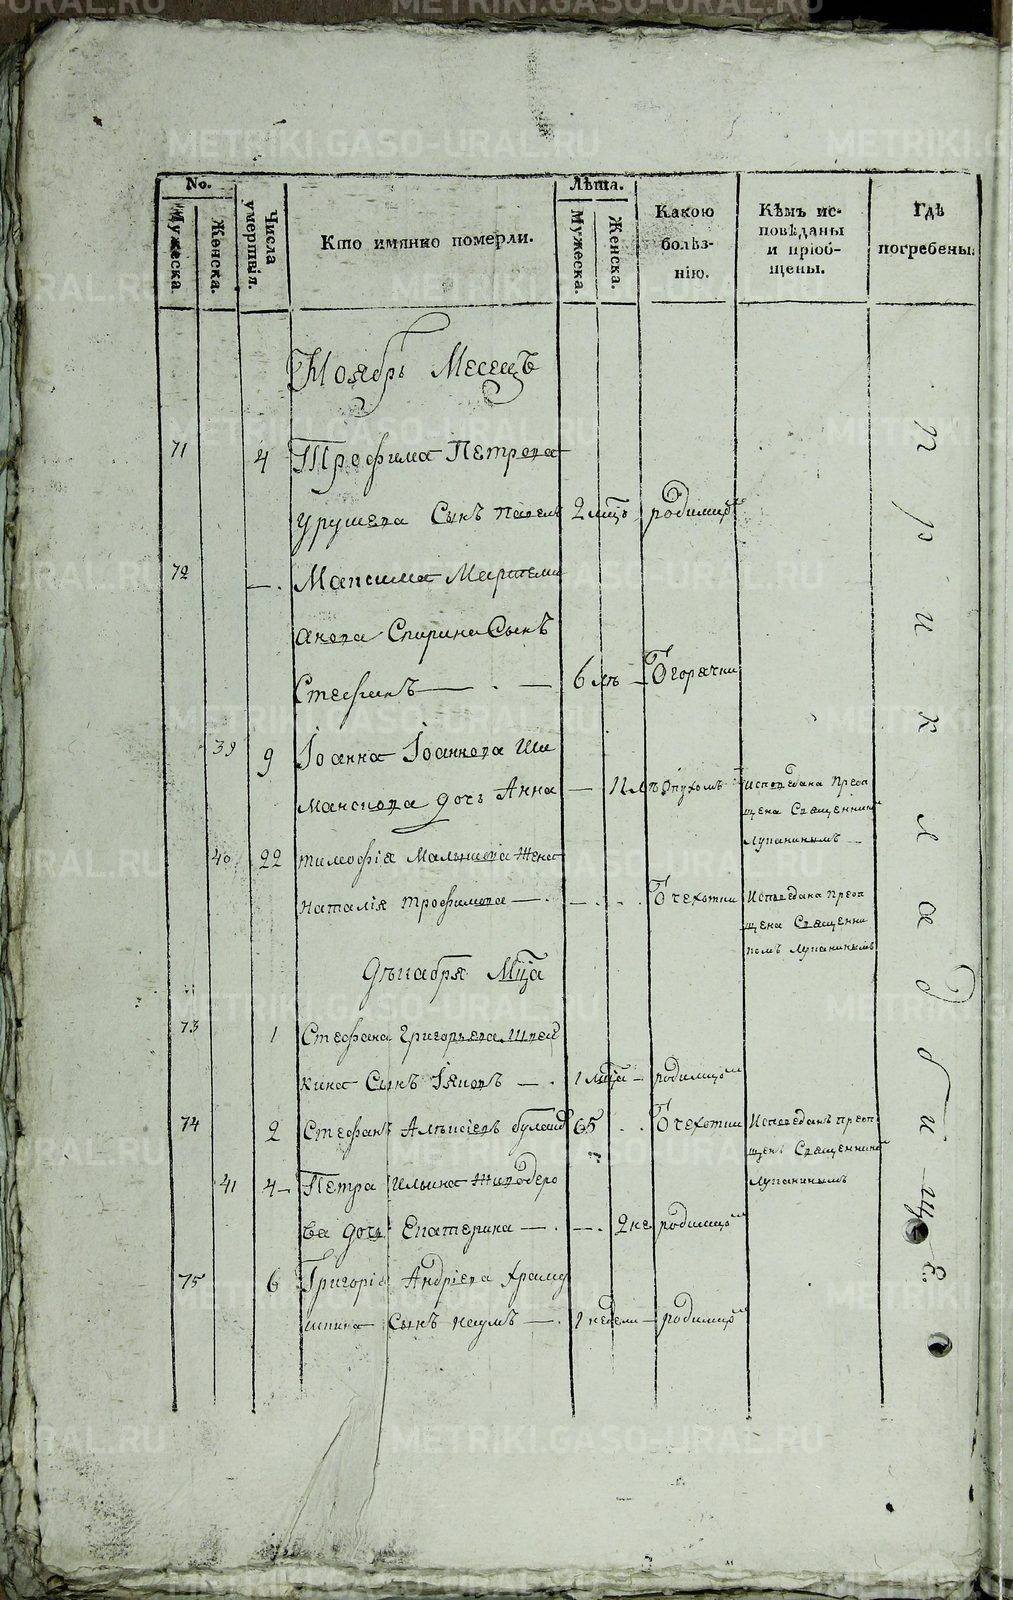 No.
Лѣта.
Мужеска.
Женска.
Числа умертвія.
Кто имянно померли.
Мужеска.
Женска.
Какою болѣз-
нію.
Кѣмъ ис-
повѣданы
и пріоб-
щены.
Гдѣ
погребены.
Ноябрь Месецъ
71 4 Трофима Петрова
Урушева Сынъ Павелъ 2 мцъ родимцѣ
72 —. Максима Мартеми
анова Спирина Сынъ
Стефанъ — . — 6 лѣ — Ѿ горячки
39 9 Іоанна Іоаннова Ши
манскова дочь Анна — 12 лѣ Опухомъ Исповѣдана Преоп
щена Священникѡ
Лупанинымъ —
40 22 тимофія Малышева Жена
Наталія Трофимова — . — . . Ѿ чехотки Исповѣдана Преоп
щена Священни
комъ Лупанинымъ
Дѣкабря Мца
73 1 Стефана Григорьева
кина Сынъ Іяковъ — . 1 мца — родимцѡ
74 2 Стефанъ Алѣксіевъ 65 . . Ѿ чехотки Исповѣданъ преоп
щенъ Священникѡ
Лупанинымъ
41 4 — Петра Ильина Живодеро
ва дочь Екатерина — . — . 2 не родимцѡ
75 6 Григорія Андріева Храму
шкина Сынъ Наумъ — . 1 недели — родимцѡ
при кладбищѣ
METRIKI.GASO-URAL.RU